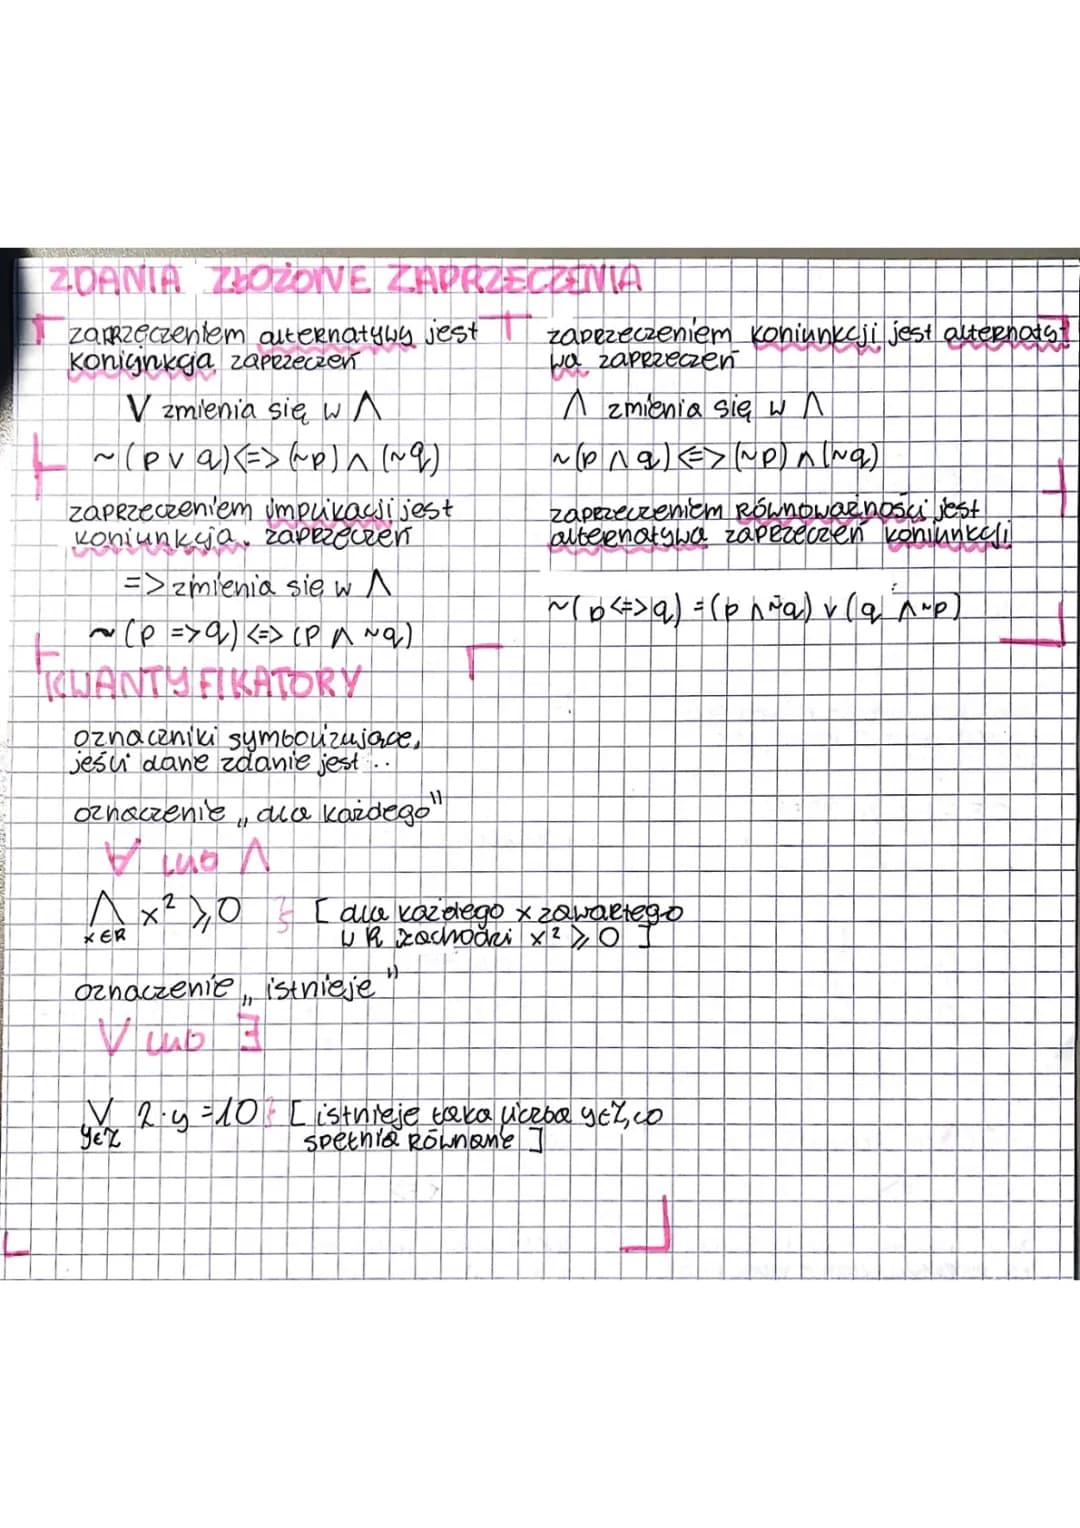 ZDANIA ZŁOŻONE ZAPRZECZENIA
zaprzeczeniem alternatywy jest
koniunkcja zaprzeczeń
V zmienia się w Λ
~(p v q)<=> (~p) ∧ (~q)
zaprzeczeniem implikacji jest
koniunkcja. zaprzeczeń
=> zmienia się w Λ
~(p => q) <=> (p ∧ ~q)
zaprzeczeniem koniunkcji jest alternaty-
wa zaprzeczeń
Λ zmienia się w Λ
~(p ∧ q) <=> (~p) ∧ (~q)
zaprzeczeniem równoważności jest
alternatywa zaprzeczeń koniunkcji
~(p <=> q) = (p ∧ ~q) v (q ∧ ~p)
KWANTYFIKATORY
oznaczniki symbolizujące,
jeśli dane zdanie jest ...
oznaczenie „dla każdego"
∀ lub Λ
Λ x² ≥ 0 } [ dla każdego x zawartego
x∈R w R zachodzi x² ≥ 0 ]
oznaczenie „istnieje"
V lub ∃
V 2·y = 10 } [ istnieje taka liczba y∈Z, co
y∈Z spełnia równanie ]